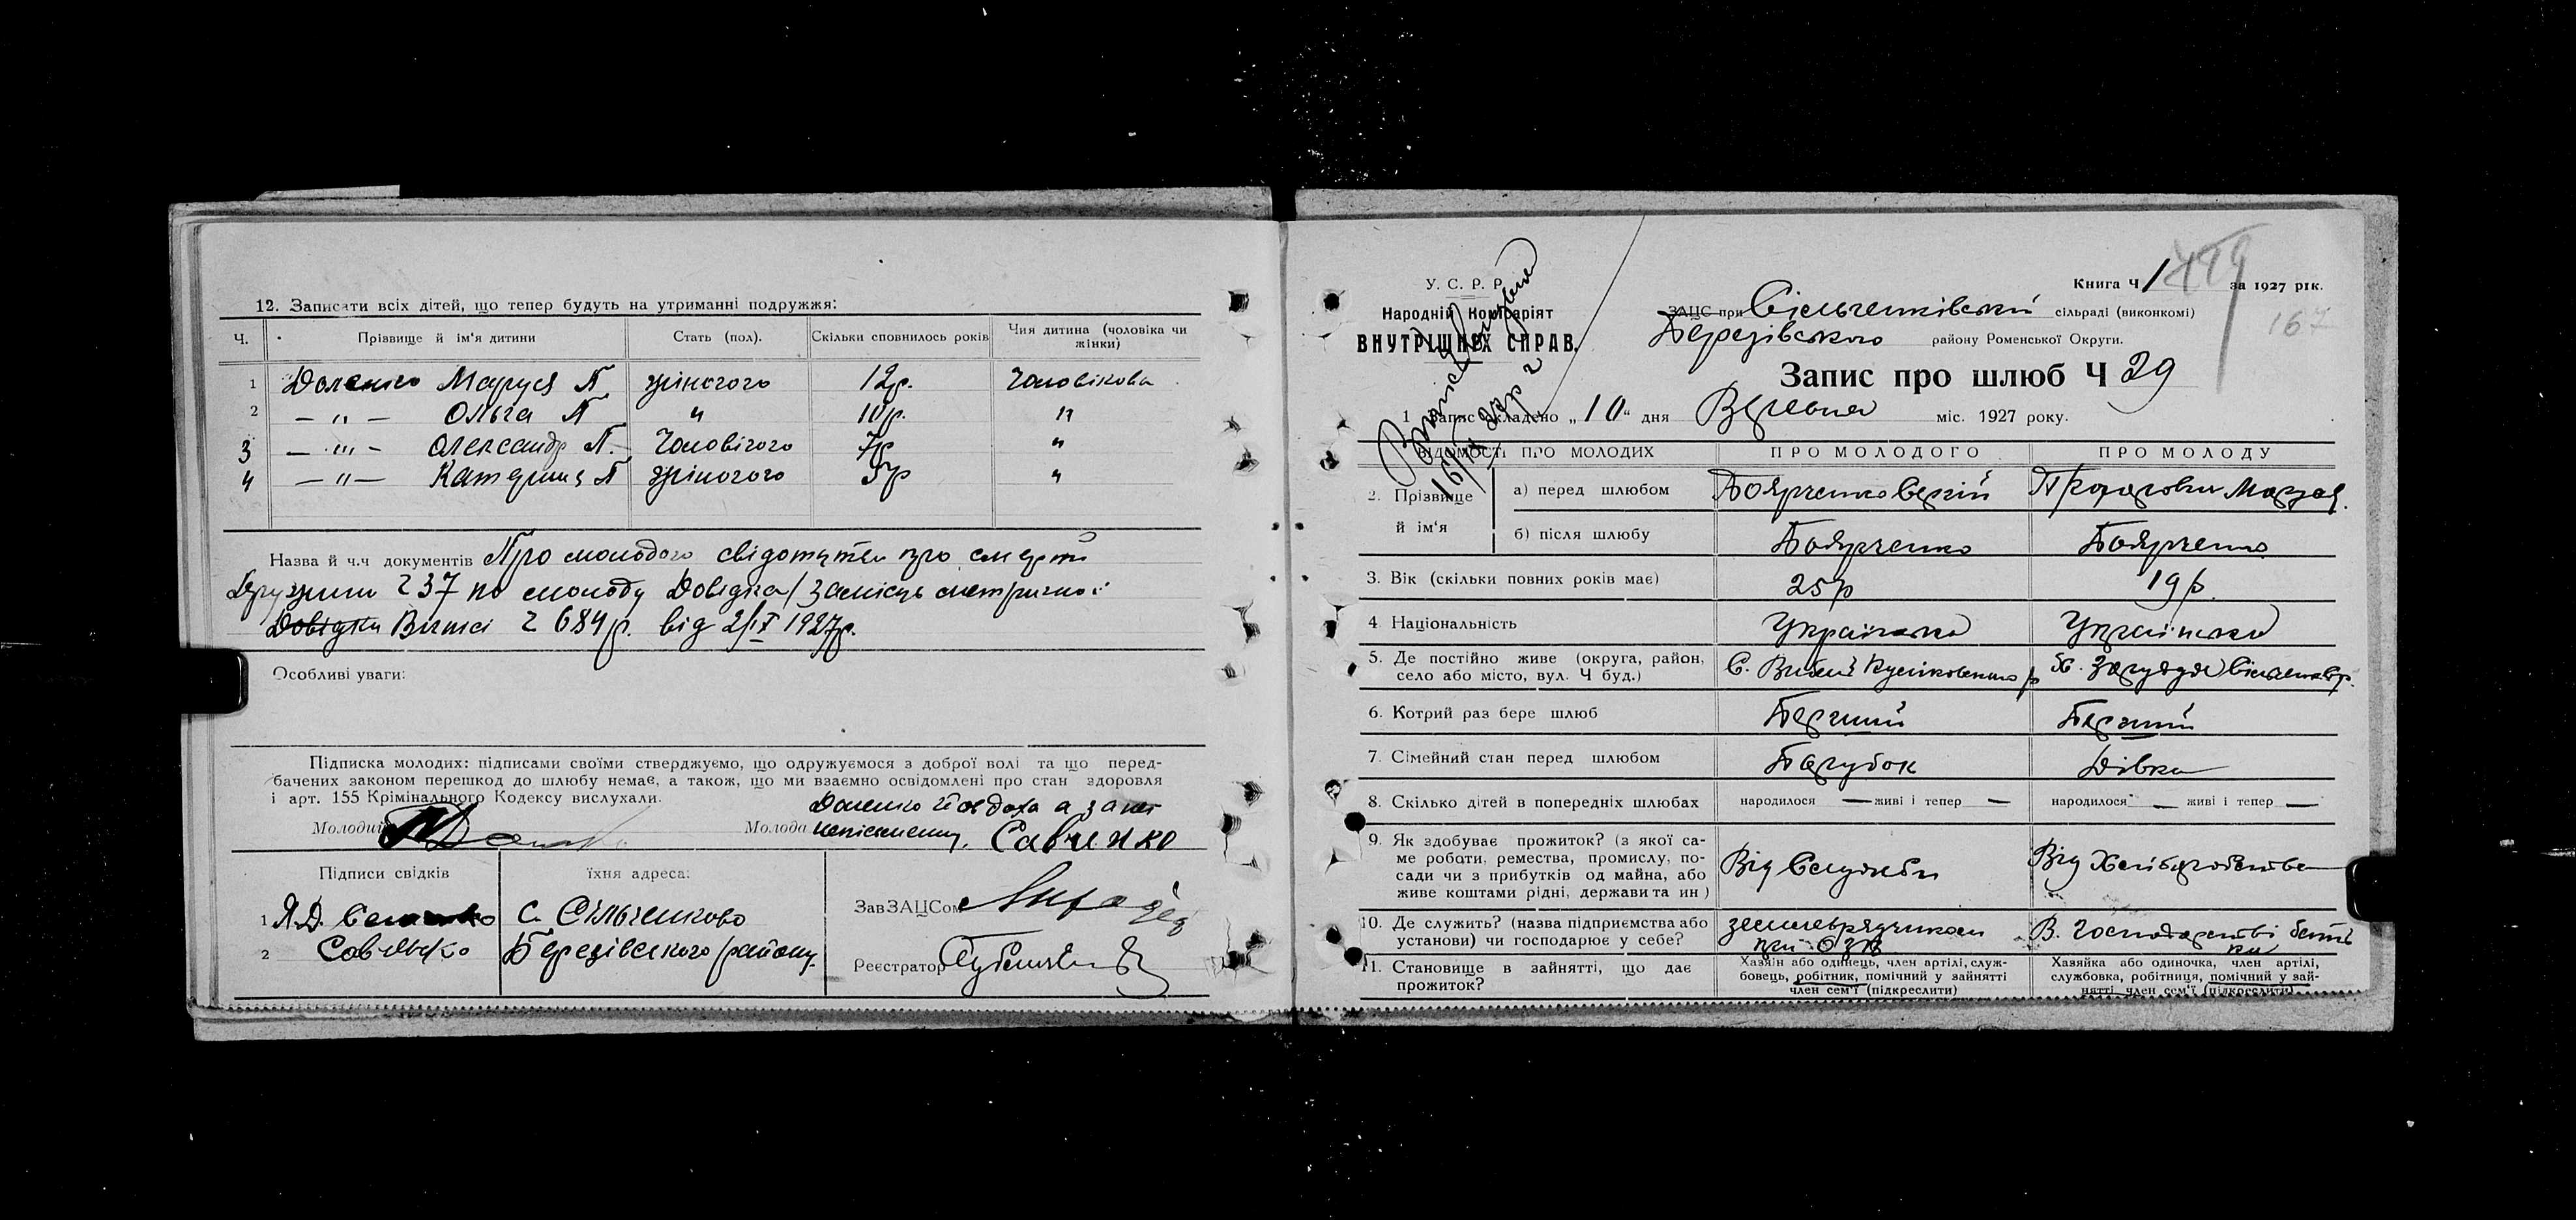 12. Записати всіх дітей, що тепер будуть на утриманні подружжя:
Ч. Прізвище й ім'я дитини Стать (пол). Скільки сповнилось років Чия дитина (чоловіка чи жінки)
1 Доленко Маруся П. жіночого 12р. Чоловікова
2 — „ — Ольга П „ 10р. „
3 — „ — Олександр П. Чоловічого 7р „
4 — „ — Катерина П жіночого 5р „
Назва й ч.ч документів Про молодого свідоцтво про смерть
Дружини Ч 37 по молоду Довідка замісць метричної
Довідки Виписі Ч 684р. від 2/IX 1927р.
Особливі уваги:
Підписка молодих: підписами своїми стверджуємо, що одружуємося з доброї волі та що перед-
бачених законом перешкод до шлюбу немає, а також, що ми взаємно освідомлені про стан здоровля
і арт. 155 Крімінального Кодексу вислухали.
Доленко Йовдоха а за неї
Молодий Молода неписьменну. Савченко
Підписи свідків їхня адреса:
ЗавЗАЦСом
1 Я.Д. с. Сільченково
2 Савченко Березівського району.
Реєстратор
У. С. Р. Р.
Народній Комісаріят
ВНУТРІШНІХ СПРАВ.
Книга Ч 1 за 1927 рік.
167
ЗАЦС при Сільченківській сільраді (виконкомі)
Березівського району Роменської Округи.
Запис про шлюб Ч 29
1 Запис складено „10" дня Вересня міс. 1927 року.
ВІДОМОСТІ ПРО МОЛОДИХ ПРО МОЛОДОГО ПРО МОЛОДУ
2. Прізвище й ім'я а) перед шлюбом Боярченко Сергій Марія
б) після шлюбу Боярченко Боярченко
3. Вік (скільки повних років має) 25р 19р.
4 Національність Українська Українська
5. Де постійно живе (округа, район, село або місто, вул. Ч буд.) С.
6. Котрий раз бере шлюб Перший Перший
7. Сімейний стан перед шлюбом Парубок Дівка
8. Скілько дітей в попередніх шлюбах народилося — живі і тепер — народилося — живі і тепер —
9. Як здобуває прожиток? (з якої са-
ме роботи, ремества, промислу, по-
сади чи з прибутків од майна, або
живе коштами рідні, держави та ин) Від Служби Від Хліборобства
10. Де служить? (назва підприємства або
установи) чи господарює у себе? землевпрядчиком при В. господарстві батьків
11. Становище в зайнятті, що дає
прожиток?
Хазяїн або одинець, член артілі, служ-
бовець, робітник, помічний у зайнятті
член сем'ї (підкреслити)
Хазяйка або одиночка, член артілі,
службовка, робітниця, помічний у зай-
нятті член сем'ї (підкреслити)